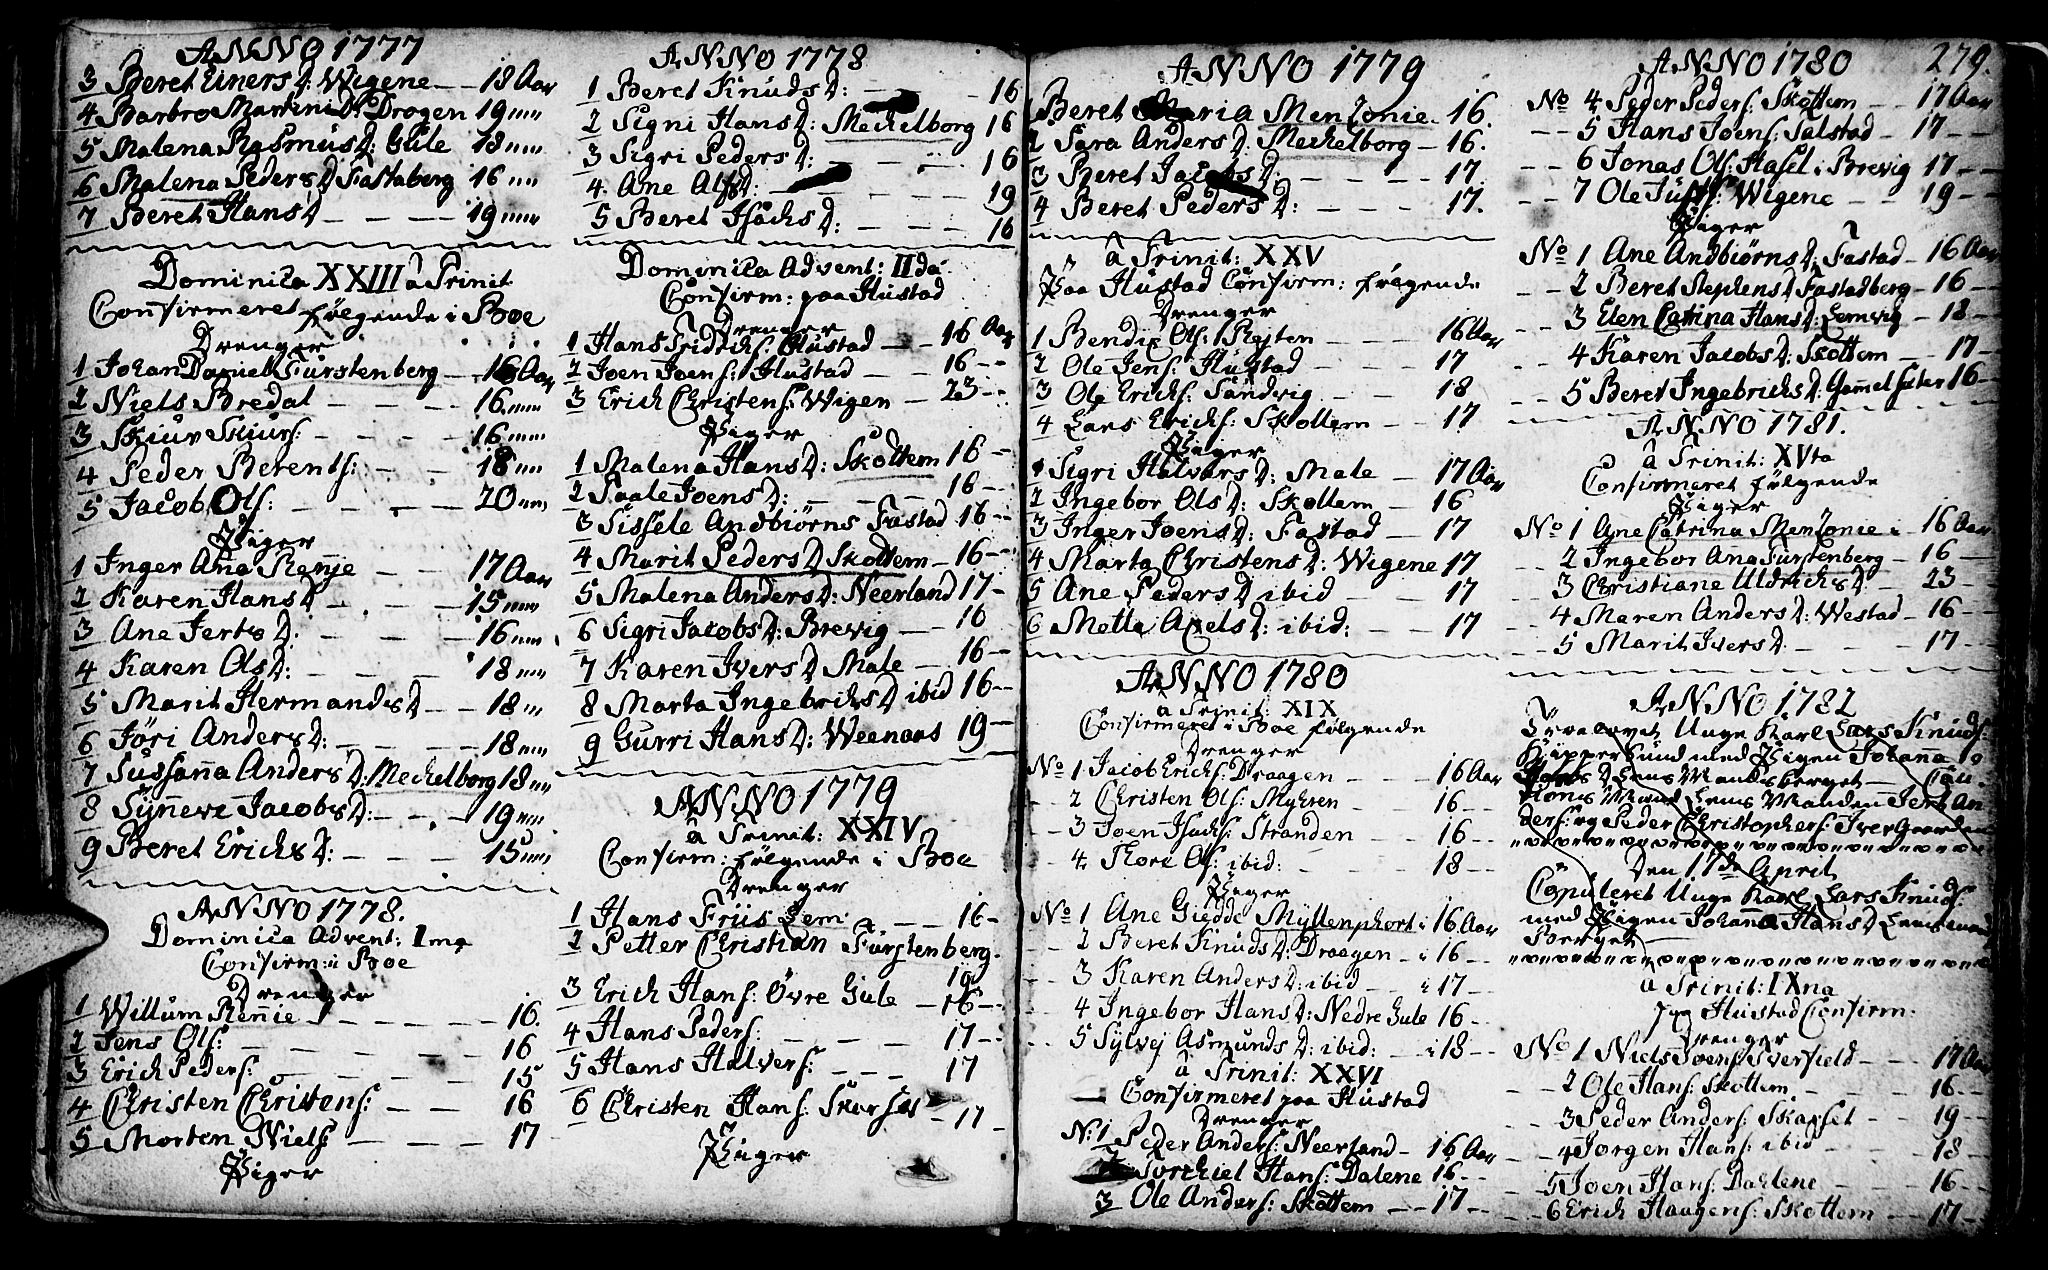 ANNO 1777
3 Beret Einers D: Wigene — 18 Aar
4 Barbro Martini D: Drogen 19
5 Malena Rasmus D: Gule 18
6 Malena Peders D Fastaberg 16
7 Beret Hans D — — — 19
Dominica XXIII à Trinit
Confirmeret følgende i Boe
Drenger
1 Johan Daniel Fürstenberg — 16 Aar
2 Niels Bredal — — — 16
3 Skiur Skiurs: — — — 16
4 Peder Berents: — — 18
5 Jacob Ols: — — — 20
Piger
1 Inger Ana Renje — — 17 Aar
2 Karen Hans D — — — 15
3 Ane Jerts D: — — — 16
4 Karen Ols D: — — — 18
5 Marit Hermands D — — 18
6 Jöri Anders D: — — — 18
7 Sussana Anders D: Mechelborg 18
8 Synneve Jacobs D: — — 19
9 Beret Erichs D: — — — 15
ANNO 1778.
Dominica Advent: Ima
Confirm: i Boe
Drenger
1 Willum Renie — — — 16.
2 Jens Ols: — — — — 16
3 Erich Peders: — — — 15
4 Christen Christens: — — 16
5 Morten Niels — — — 17
Piger
ANNO 1778
1 Beret Knuds D: — — 16
2 Signi Hans D: Mechelborg 16
3 Sigri Peders D: — — — 16
4. Ane Ols D: — — — — 19
5 Beret Isachs D: — — — 16
Dominica Advent: IIda
Confirm: paa Hustad
Drenger
1 Hans Fridrichs: Hustad — 16 Aar
2 Joen Joens: Hustad — — 16 --
3 Erich Christens: Wigen — 23 --
Piger
1 Malena Hans D: Skottem 16 --
2 Paale Joens D: — — — 16 --
3 Sissele Andbiørns Fastad 16 --
4 Marit Peders D Skottem — 16 --
5 Malena Anders D: Neerland 17 -
6 Sigri Jacobs D: Brevig — 16
7 Karen Ivers D Male — 16 --
8 Marta Ingebrichs D ibid 16 --
9 Gurri Hans D: Weenaas 19 --
ANNO 1779
à Trinit: XXIV
Confirm: følgende i Boe
Drenger
1 Hans Friis Lem — — 16 -
2 Petter Christian Fürstenberg.
3 Erich Hans: Övre Gule — 16 --
4 Hans Peders: — — — 17 --
5 Hans Halvers: — — — 17
6 Christen Hans: — 17 --
Piger
ANNO 1779
1 Beret Maria Menzonie. 16.
2 Sara Anders D. Mechelborg — 16.
3 Beret Jacobs D: — — — 17
4 Beret Peders D: — — — 17.
à Trinit: XXV
Paa Hustad Confirm: følgende
Drenger
1 Bendix Ols: Rejten — — 16 Aar
2 Ole Jens: Hustad — — 17
3 Ole Erichs: Sandvig — — 18
4 Lars Erichs: Skottem — — 17
Piger
1 Sigri Halvars D: Male — 17 Aar
2 Ingebor Ols D: Skottem — 16
3 Inger Joens D: Fastad — 17
4 Marta Christens D: Wigene 17
5 Ane Peders D ibid — — 17
6 Mette Axels D: ibid: — — 17
ANNO 1780
à Trinit: XIX
Confirmeret i Boe følgende
Drenger
No 1 Jacob Erichs: Draagen — — 16 Aar
-- 2 Christen Ols: Myhren — 16 --
-- 3 Joen Isachs: Stranden — 16 --
-- 4 Tore Ols: ibid: — — 18 --
Piger
No 1 Ane Giedde Myllenphort i 16 Aar
-- 2 Beret Knuds D: Draagen — i 16 --
-- 3 Karen Anders D: ibid — i 17 --
4 Ingebor Hans D: Nedre Gule 16 --
-- 5 Sylvej Asmunds D: ibid: — i 18 --
à Trinit: XXVI
Confirmeret paa Hustad
Drenger
No: 1 Peder Anders: Neerland — 16 Aar
Torchiel Hans: Dalene 16 --
3 Ole Anders: Skottem — — 17 --
ANNO 1780 279.
No 4 Peder Peders: Skottem — — 17 Aar
-- 5 Hans Joens: Talstad — 17 --
-- 6 Jonas Ols: Hasel i Brevig 17 --
-- 7 Ole Justs: Wigene — — 19 --
Piger
No 1 Ane Andbiørns D: Fastad — 16 Aar
-- 2 Beret Stephens D Fastadberg — 16 --
-- 3 Elen Catrina Hans D: Lemvig — 18 --
-- 4 Karen Jacobs D: Skottem — 17 --
5 Beret Ingebrichs D: Gamelsæter 16 --
ANNO 1781.
à Trinit: XVta
Confirmeret følgende
Piger
No 1 Ane Catrina Menzonie i — 16 Aar
-- 2 Ingebor Ana Fürstenberg — 16 --
-- 3 Christiane Uldrichs D — 23 --
-- 4 Maren Anders D: Westad — 16 --
-- 5 Marit Ivers D: — — 17 --
ANNO 1782
Unge Karl Lars Knuds:
med Pigen Johanna
D Lensmandsberget —
Lens Manden Jert An
ders: og Peder Christophers: Ivergaarden
Den 17de April
Copuleret Unge Karl Lars Knuds:
med Pigen Johanna Hans D Lensmand
Berget —
à Trinit: IXna
paa Hustad Confirm.
Drenger
No 1 Niels Joens: Sverfield — 17 Aar
-- 2 Ole Hans: Skottem — — 16 --
-- 3 Peder Anders: Skarset — 19 --
-- 4 Jørgen Hans: ibid — — 18 --
-- 5 Joen Hans: Dahlene — — 16 --
-- 6 Erich Haagens: Skottem — — 17 --